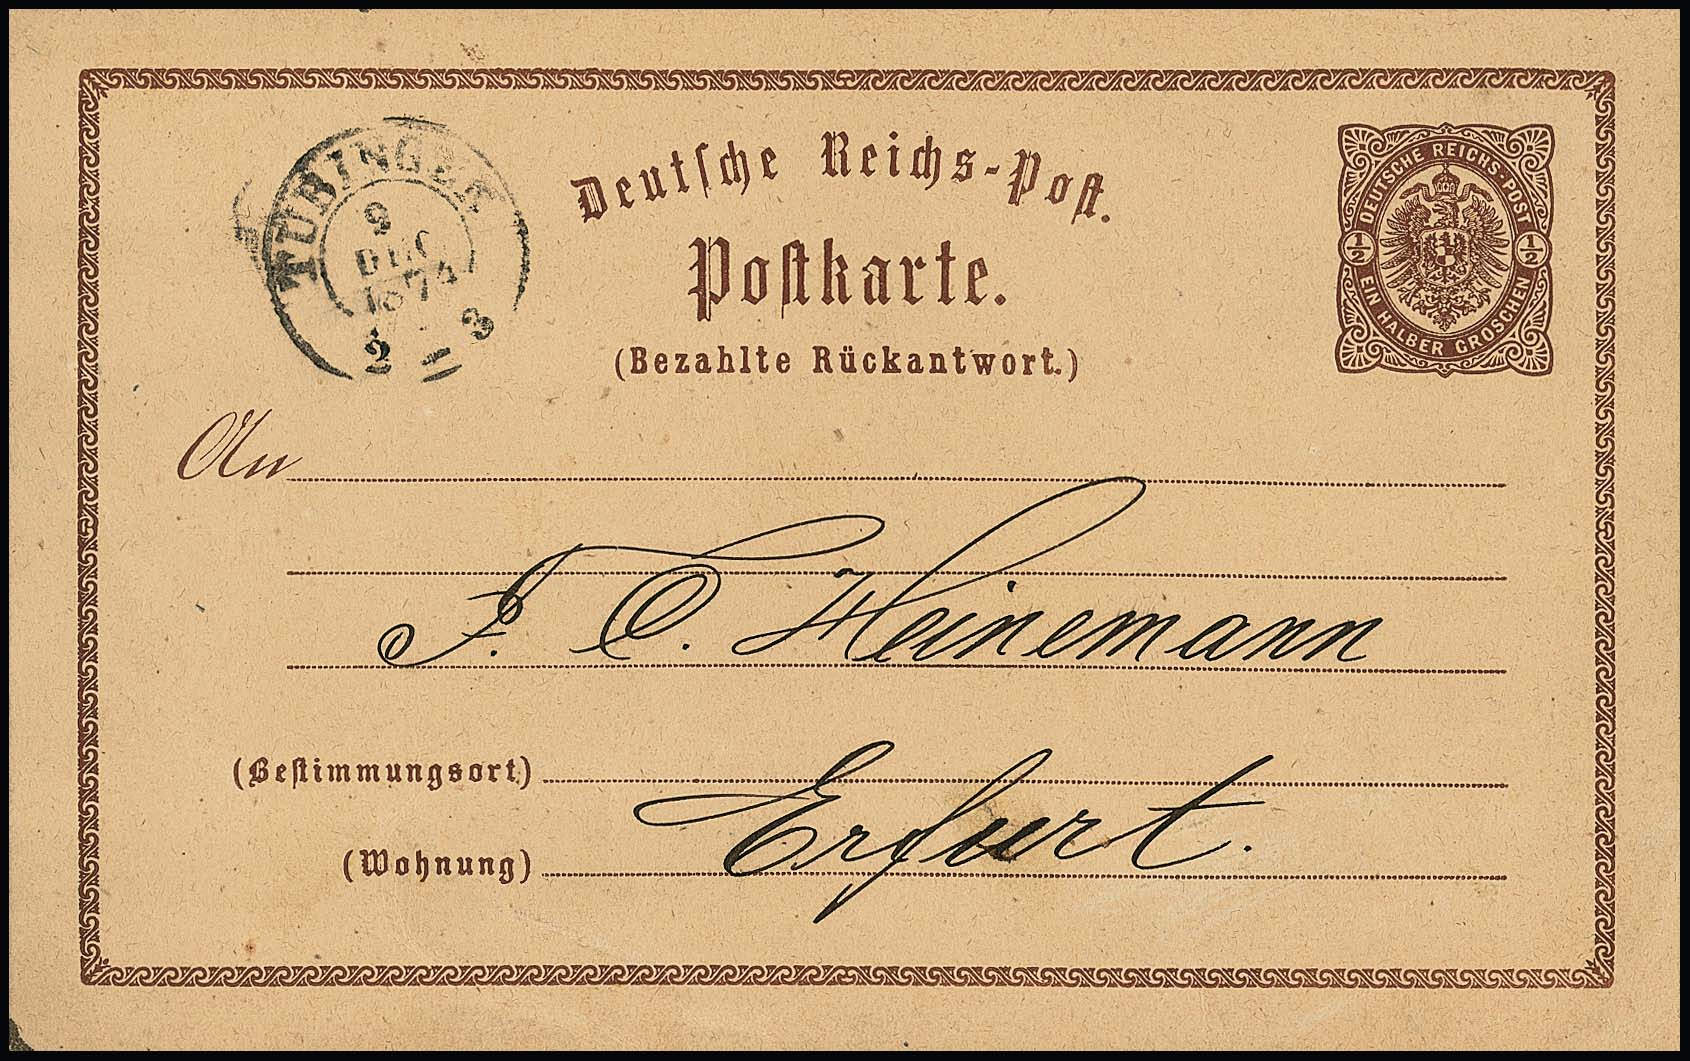 TÜBINGEN
9
DEC
1874
2 3
Deutsche Reichs-Post.
Postkarte.
(Bezahlte Rückantwort.)
DEUTSCHE REICHS-POST
1/2 1/2
EIN HALBER GROSCHEN
An
F. C. Heinemann
(Bestimmungsort)
Erfurt.
(Wohnung)